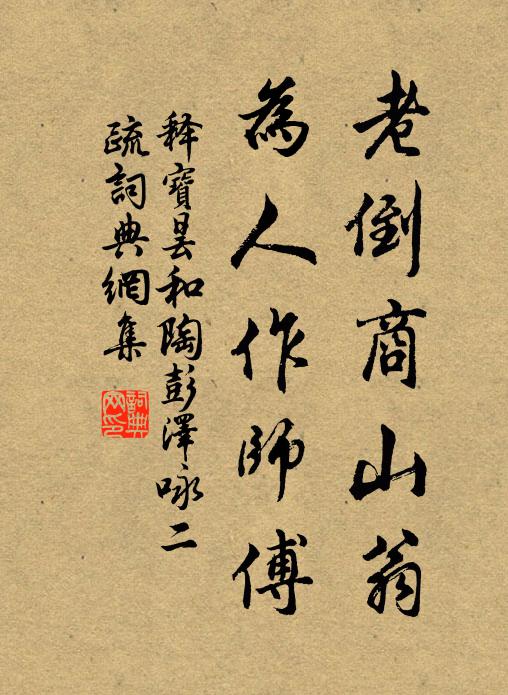 老倒商山翁
為人作師傅
释寶曇和陶彭澤咏二
疏詞典網集
詞典网印